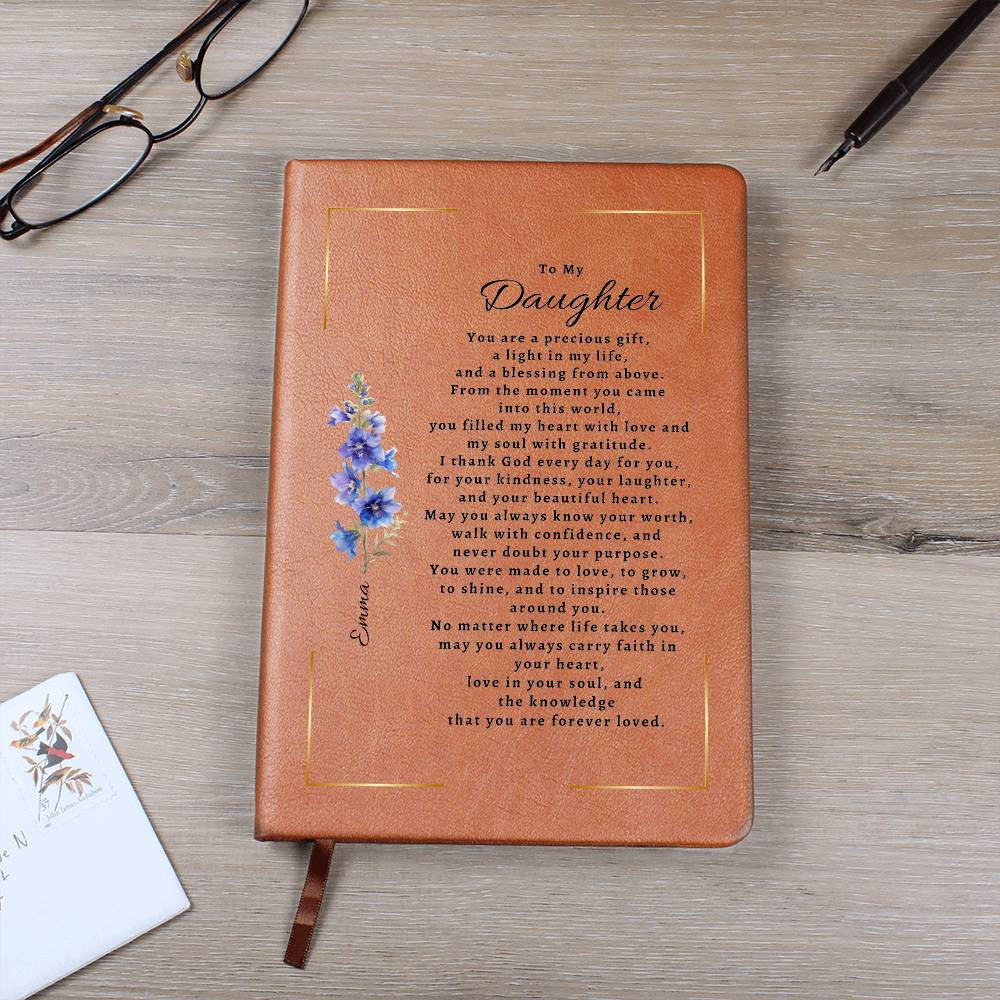 To My
Daughter
You are a precious gift,
a light in my life,
and a blessing from above.
From the moment you came
into this world,
you filled my heart with love and
my soul with gratitude.
I thank God every day for you,
for your kindness, your laughter,
and your beautiful heart.
May you always know your worth,
walk with confidence, and
never doubt your purpose.
You were made to love, to grow,
to shine, and to inspire those
around you.
No matter where life takes you,
may you always carry faith in
your heart,
love in your soul, and
the knowledge
that you are forever loved.
Emma
37
John James Audubon